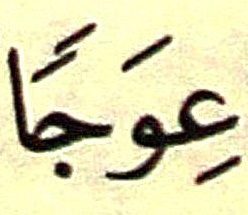 عِوَجًا